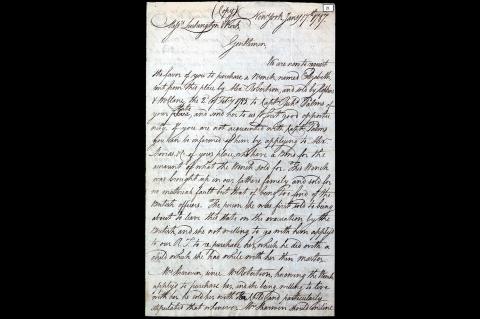 (Copy)
New York Jany 17th 1787.
Gentlemen
We are now to request
the favor of you to purchase a Wench named Elizabeth
sent from this place by Alex Robertson, and sold by
the 2d Feby 1785 to Captn Palms of
State
your place, and send her to us first good opportu
nity. If you are not acquainted with Captn Palms
you can be informed of him by applying to
of your place, who have a Bond for the
amount of what the Wench sold for. This Wench
was brought up in our fathers family and sold for
no material fault but that of being too fond of the
British officers. The person she was first sold to being
about to leave this State on the evacuation by the
British, and she not willing to go with him applyd
to our R. L. to re purchase her, which he did with a
child which she had while with her then master.
Mrs since Mrs Robertson, knowing the Wench
applyd to purchase her, and she being willing to live
with her he sold her with particularly
stipulated that whenever Mrs should incline